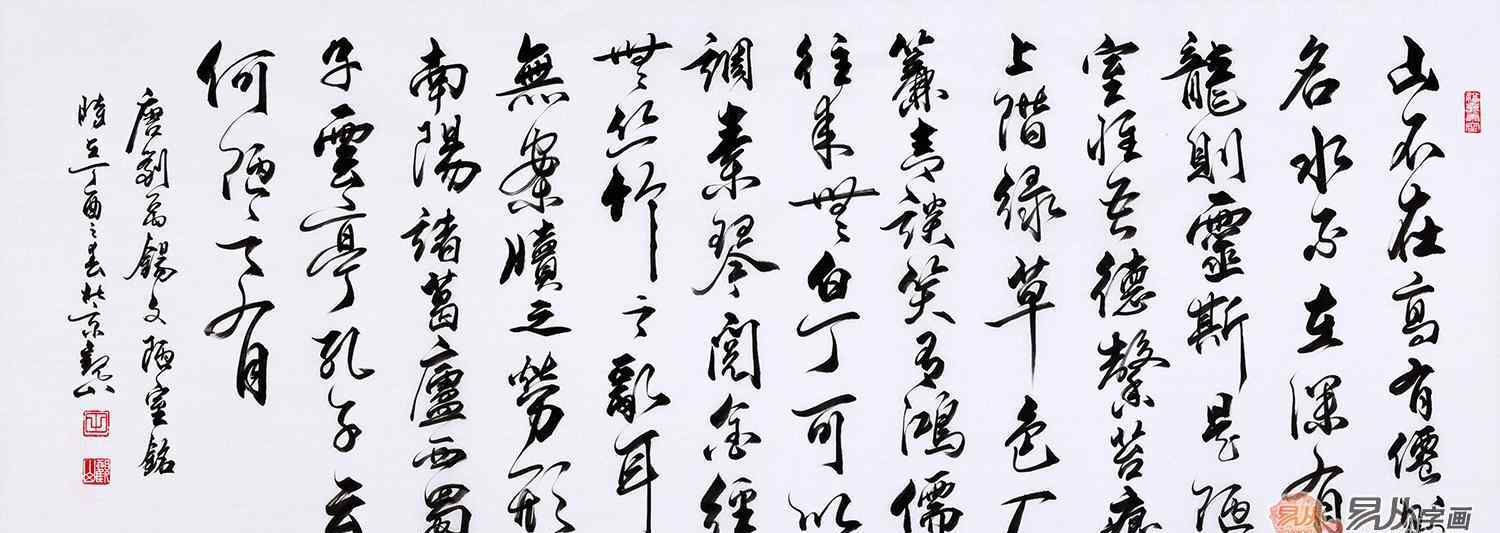 山不在高有僊則
名水不在深有
龍則靈斯是陋
室惟吾德馨苔痕
上階綠草色入
簾青談笑有鴻儒
往來無白丁可以
調素琴閱金經
無丝竹之亂耳
無案牘之勞形
南陽諸葛廬西蜀
子雲亭孔子云
何陋之有
唐劉禹錫文陋室銘
時在丁酉之春於京觀山
易从字画